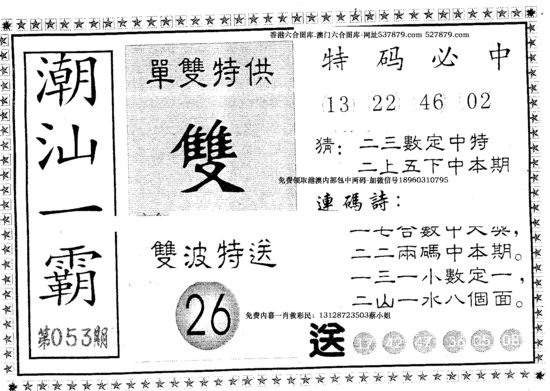 香港六合图库.澳门六合图库-网址537879.com 527879.com
潮汕一霸
第053期
單雙特供
雙
雙波特送
26
特碼必中
13 22 46 02
猜：二三數定中特
二上五下中本期
免费领取港澳内部包中两码-加微信号18960310795
連碼詩：
一七合數中大獎，
二二兩碼中本期。
一三一小數定一，
二山一水八個面。
免费内幕一肖救彩民：13128723503蔡小姐
送 17 42 47 36 05 08